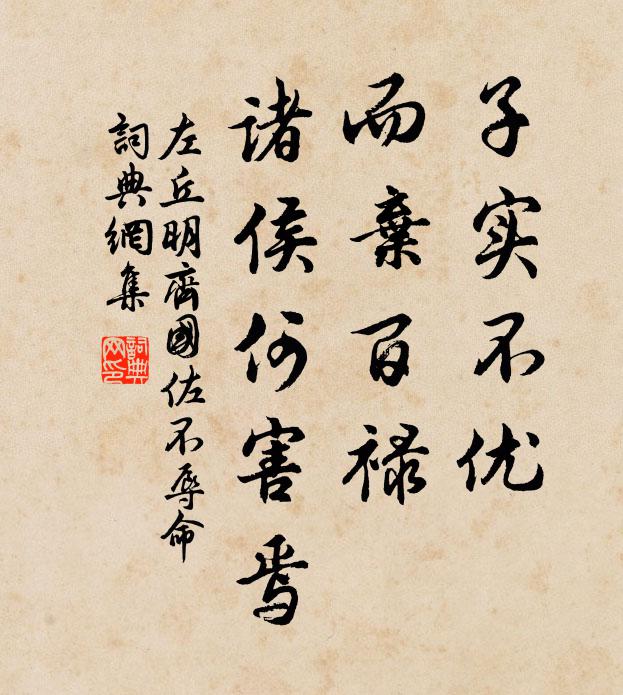 子实不优
而棄百禄
诸侯何害焉
左丘明齊國佐不辱命
詞典網集
詞典網印